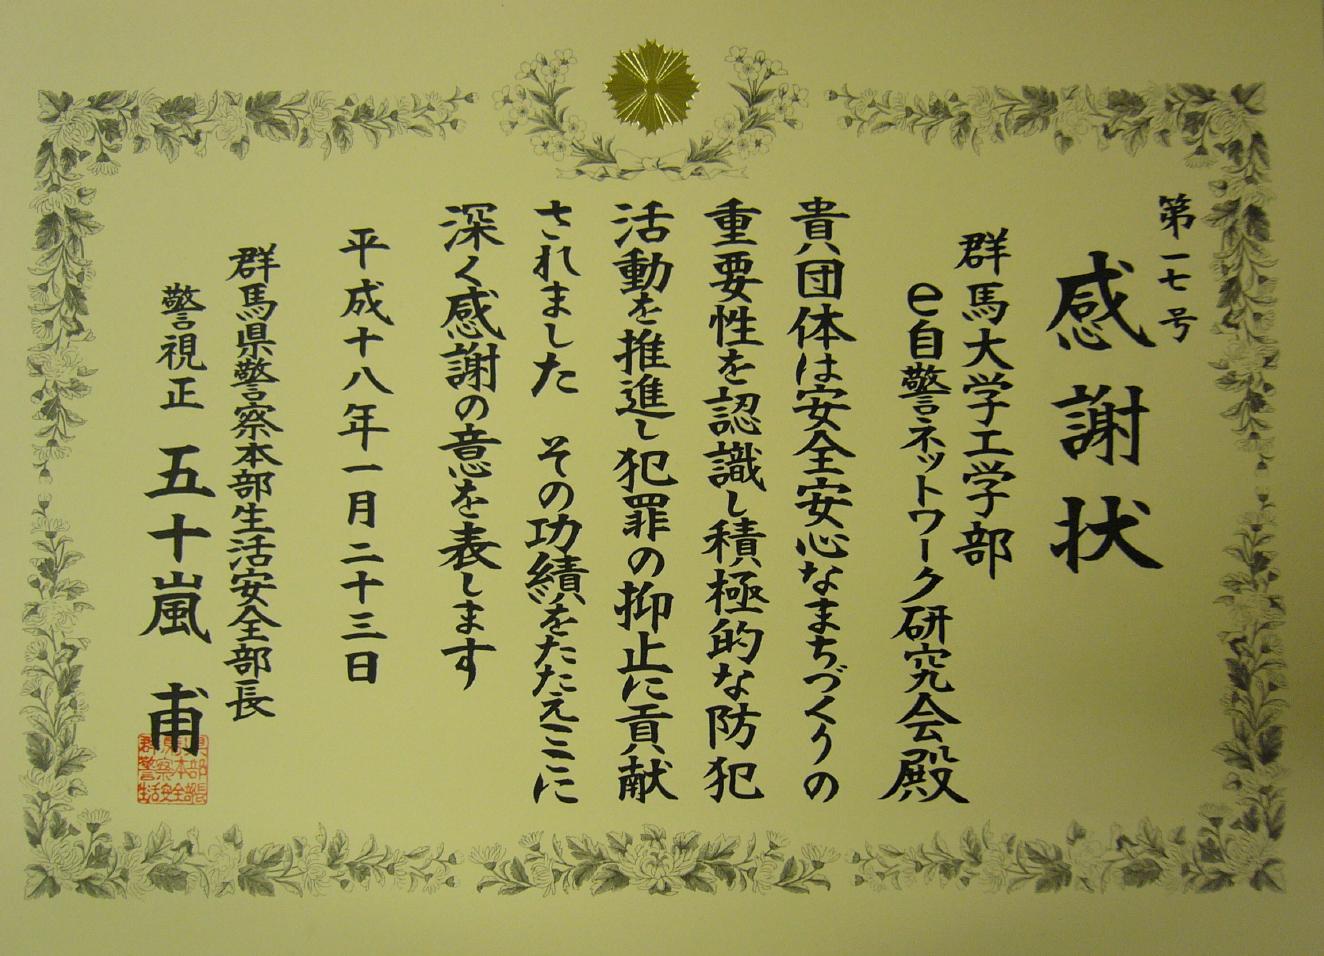 第一七号
感謝状
群馬大学工学部
e自警ネットワーク研究会殿
貴団体は安全安心なまちづくりの
重要性を認識し積極的な防犯
活動を推進し犯罪の抑止に貢献
されました　その功績をたたえここに
深く感謝の意を表します
平成十八年一月二十三日
群馬県警察本部生活安全部長
警視正　五十嵐　甫